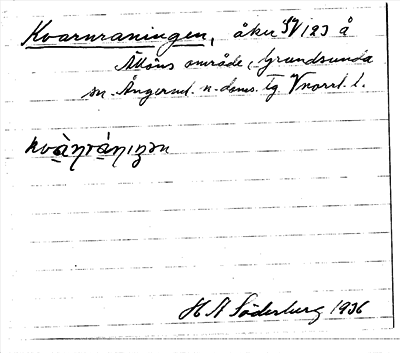 Kvarnraningen, åker SV/123 å
Ällöns område, Grundsunda
sn. Ångerml. n. doms. tg Vnorrl. l.
H A Söderberg 1936